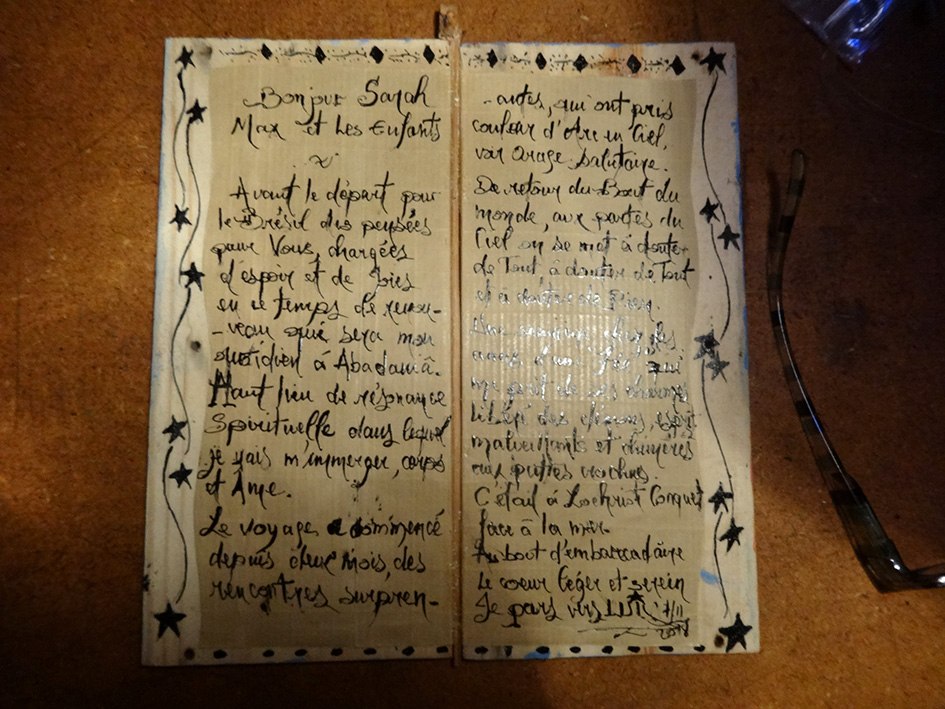 Bonjour Sarah
Max et Les Enfants
Avant le départ pour
le Brésil des pensées
pour Vous, chargées
d'espoir et de Joies
en ce temps de renou-
-veau qui sera mon
quotidien à Abadaniâ.
Haut lieu de résonance
Spirituelle dans lequel
je vais m'immerger, corps
et Âme.
Le voyage a commencé
depuis deux mois, des
rencontres surpren-
-antes, qui ont pris
couleur d'Arc en Ciel,
voir Orage Salutaire.
De retour du Bout du
monde, aux portes du
Ciel on se met à douter
de Tout, à douter de Tout
et à douter de Rien.
Une chez des
amis qui
de ses charmes
esprit
malveillants et chimères
aux
C'était à Lochrist Conquet
face à la mer
Au bout d'embarcadère
Le coeur léger et serein
Je pars vers LUI